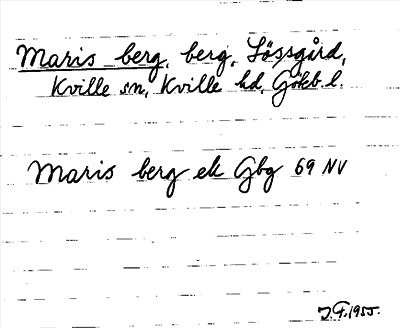 Maris berg, berg, Lössgård,
Kville sn, Kville hd, Gökb. l.
Maris berg ek Gbg 69 NV
J.F. 1955.